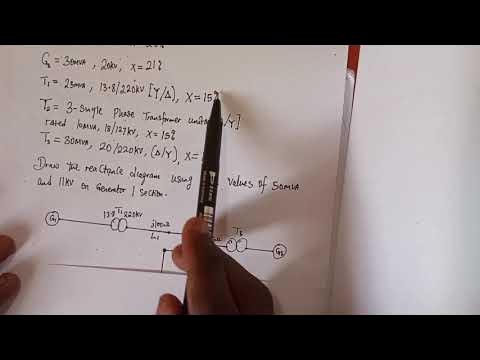 G₂ = 30MVA, 20kV, X = 21%
T₁ = 25MVA, 13.8/220kV [Y/Δ], X = 15%
T₂ = 3-single phase Transformer /Y]
rated 10MVA, 18/127kV, X = 15%
T₃ = 30MVA, 20/220kV, (Δ/Y), X =
Draw the reactance diagram using values of 50MVA
and 11kV on Generator 1 section.
G₁ T₁ 220kV L₁ T₃ G₂